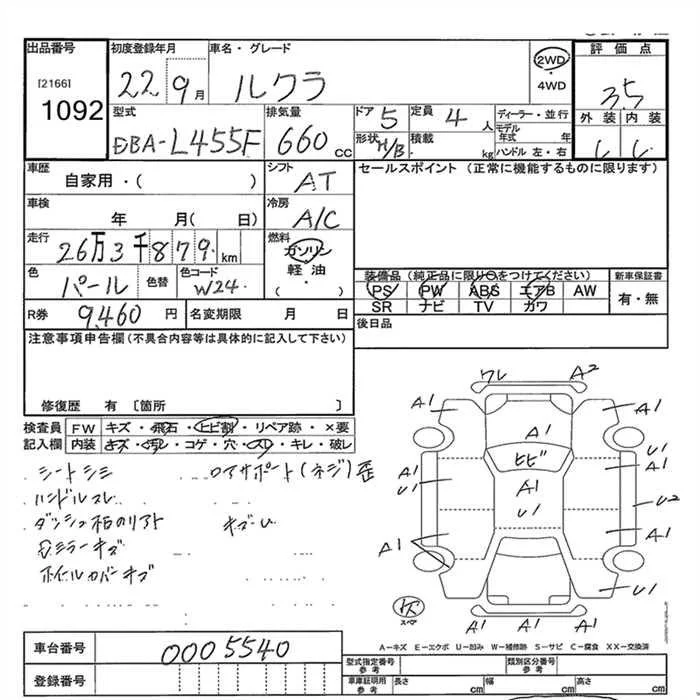 出品番号
[2166]
1092
初度登録年月
22 9月
車名・グレード
ルクラ
2WD
・
4WD
評価点
3.5
型式
DBA-L455F
排気量
660 cc
ドア 5
定員 4 人
形状 H/B
積載 kg
ディーラー・並行
モデル年式 年
ハンドル 左・右
外装 内装
車歴
自家用・( )
シフト
AT
セールスポイント (正常に機能するものに限ります)
車検
年 月( 日)
冷房
A/C
走行
26万3千879km
燃料
ガソリン
軽油
( )
色
パール
色替
色コード
W24
装備品 (純正品に限り○をつけてください)
PS PW ABS エアB AW
SR ナビ TV カワ
新車保証書
有・無
R券 9,460 円
名変期限 月 日
後日品
注意事項申告欄 (不具合内容等は具体的に記入して下さい)
修復歴 有 〔箇所 〕
検査員記入欄
FW キズ・飛石・ヒビ割・リペア跡・×要
内装 キズ・汚レ・コゲ・穴・スリ・キレ・破レ
シートシミ
ロアサポート(ネジ)歪
ハンドルスレ
キズ・U
ホイルカバーキズ
ワレ A2
A1 A1
A1
ヒビ
A1 U1
A1 U1
A1
U2
A1
A1
U1
A1 A1 A1
スペア
A-キズ E-エクボ U-凹み W-補修跡 S-サビ C-腐食 XX-交換済
車台番号 0005540
登録番号
型式指定番号 参考
類別区分番号 参考
車庫証明用 参考
長さ cm
幅 cm
高さ cm